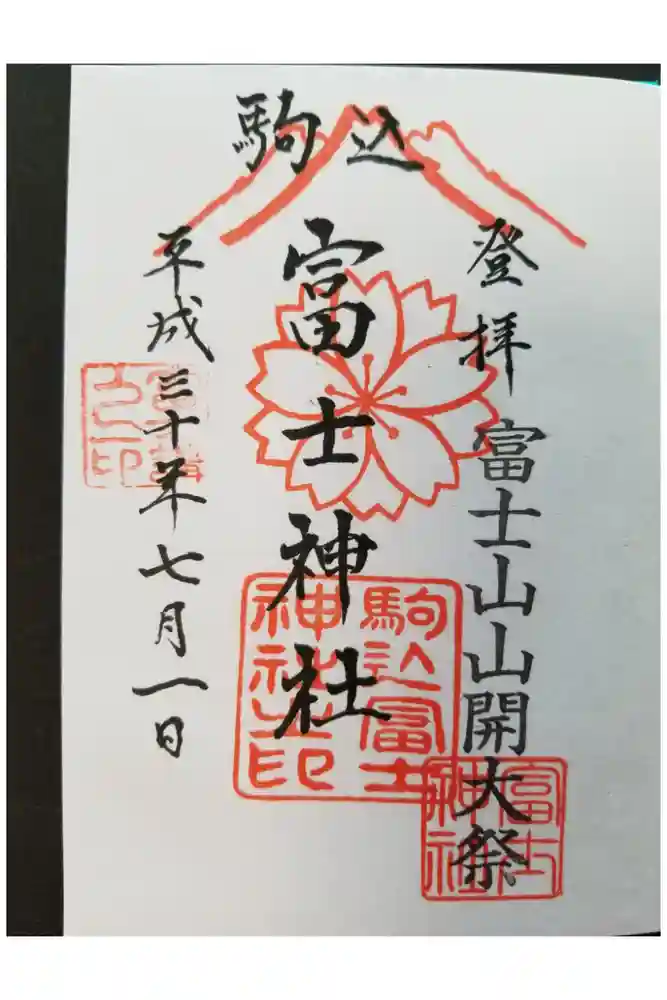 駒込
登拝 富士山山開大祭
富士神社
平成三十年七月一日
駒込富士
神社之印
富士
神社